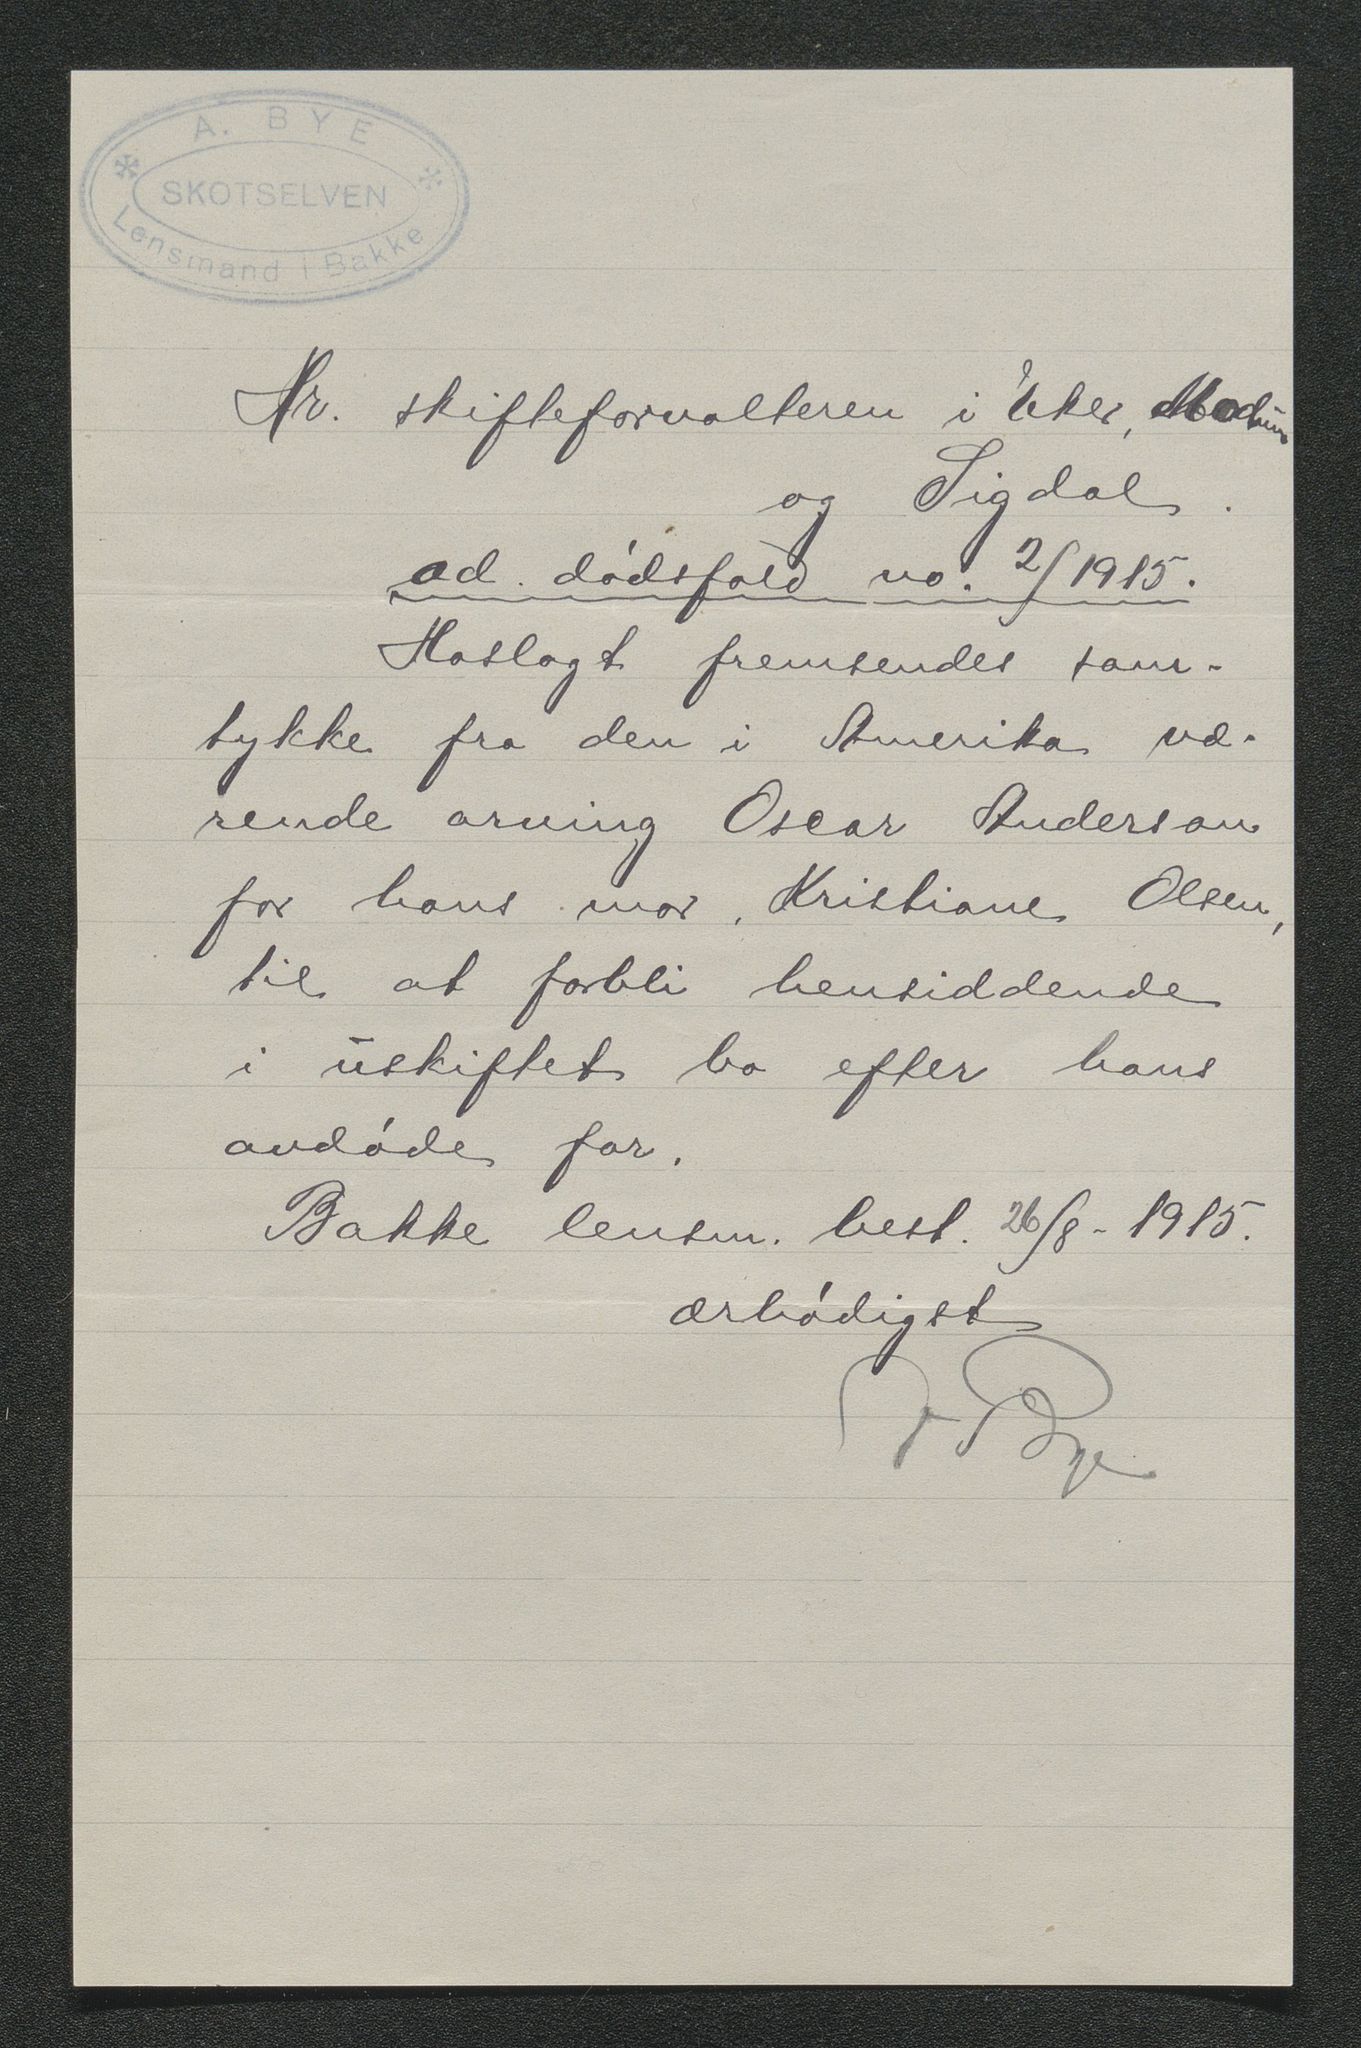 A. BYE
SKOTSELVEN
Lensmand i Bakke
Hr. skifteforvalteren i Eker, Modum
og Sigdal.
ad. dødsfald no. 2/1915.
Haslagt fremsendes sam-
tykke fra den i Amerika væ-
rende arving Oscar Anderson
for hans mor, Kristiane Olsen,
til at forbli hensiddende
i uskiftet bo efter hans
avdøde far.
Bakke lensm. best. 26/8-1915.
ærbødigst
A Bye